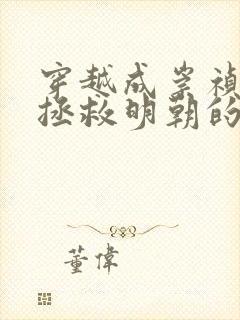 穿越成崇禎
拯救明朝的
董偉